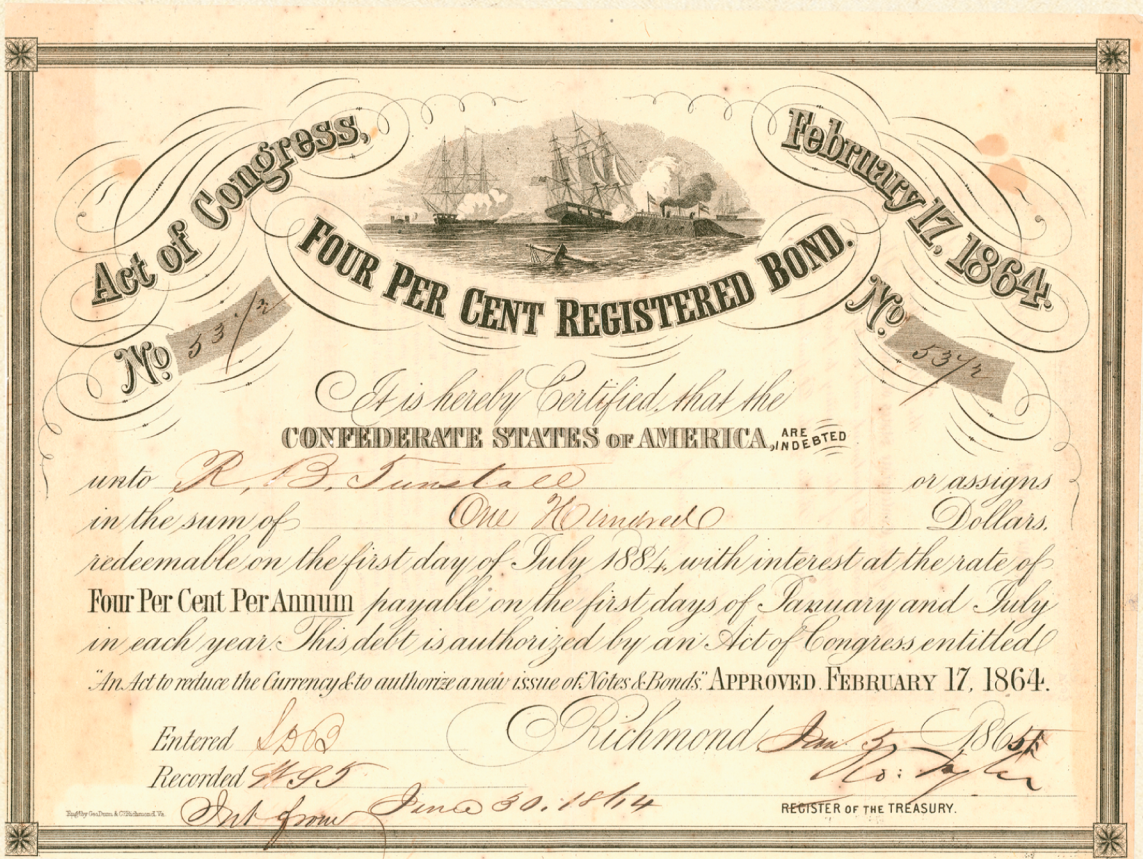 Act of Congress,
February 17, 1864.
FOUR PER CENT REGISTERED BOND.
No 53 1/2
No 53 1/2
It is hereby Certified, that the
CONFEDERATE STATES OF AMERICA, ARE INDEBTED
unto R. B. Tunstall or assigns
in the sum of One Hundred Dollars.
redeemable on the first day of July 1884, with interest at the rate of
Four Per Cent Per Annum payable on the first days of January and July
in each year. This debt is authorized by an Act of Congress entitled
"An Act to reduce the Currency & to authorize a new issue of Notes & Bonds." APPROVED. FEBRUARY 17, 1864.
Entered Richmond Jan. 5, 1865
Recorded Ro: Tyler
Int from June 30. 1864
REGISTER OF THE TREASURY.
Eng'd by Geo. Dunn & Co. Richmond, Va.